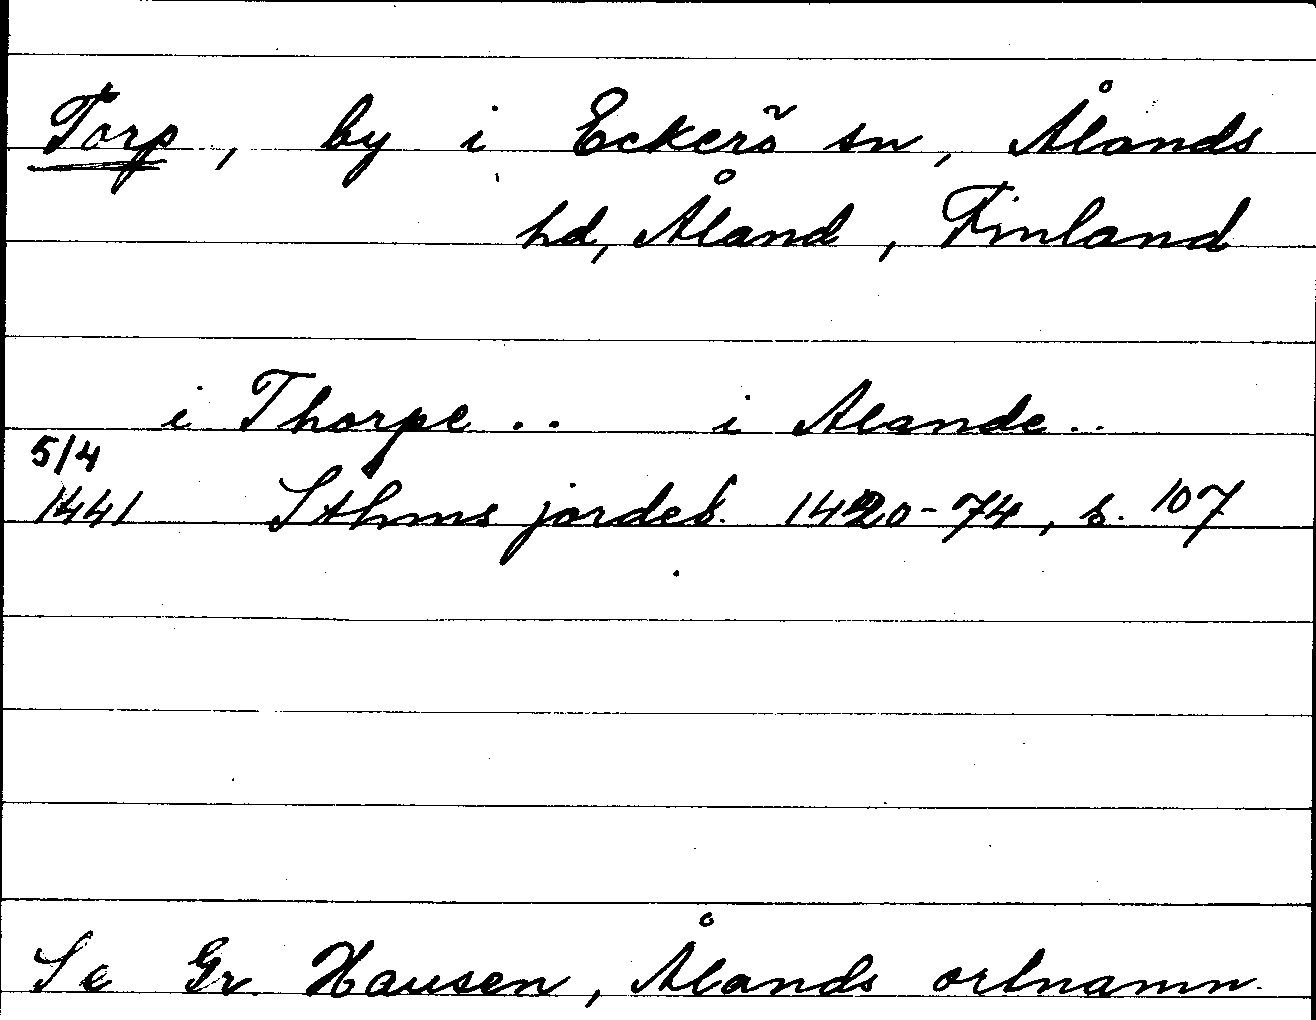 Torp, by i Eckerö sn, Ålands
hd, Åland, Finland
i Thorpe .. i Alande ..
5/4
1441 Sthms jordeb. 1420-74, s. 107
Se Gr. Hausen, Ålands ortnamn.